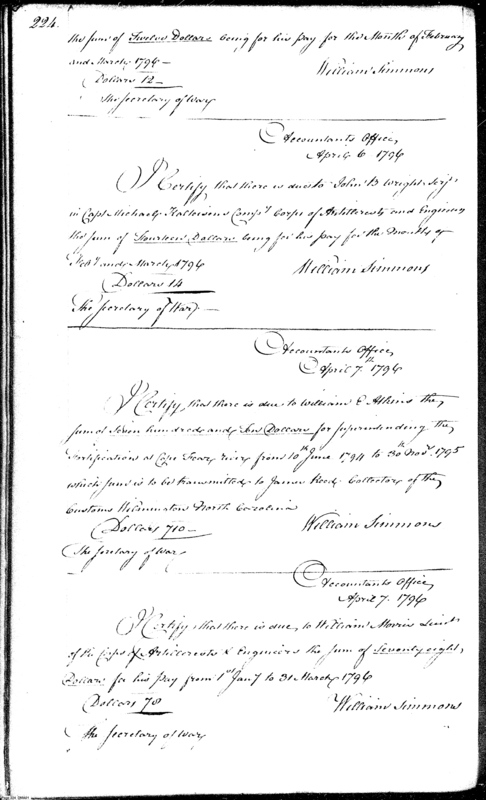 224.
the sum of Twelve Dollars being for his pay for the Month of February
and March 1796 —
William Simmons
Dollars 12 —
The Secretary of War
Accountants Office,
April 6 1796
I Certify, that there is due to John D Wright Serjt
in Capt Michael Kalteisens Compy Corps of Artillerests and Engineers
the sum of Fourteen Dollars being for his pay for the Months of
Feby and March 1796
William Simmons
Dollars 14
The Secretary of War —
Accountants Office,
April 7th 1796
I Certify, that there is due to William E Atkins the
sum of Seven hundred and Ten Dollars for superintending the
fortification at Cape Fear river from 10th June 1794 to 30th Novr 1795
which sum is to be transmitted to James Read Collector of the
Customs Wilmington North Carolina
William Simmons
Dollars 710 —
The Secretary of War
Accountants Office,
April 7. 1796
I Certify that there is due, to William Morris Lieut
of the Corps of Artillerests & Engineers the sum of Seventy eight
Dollars for his pay from 1st Jany to 31 March 1796
William Simmons
Dollars 78
The Secretary of War